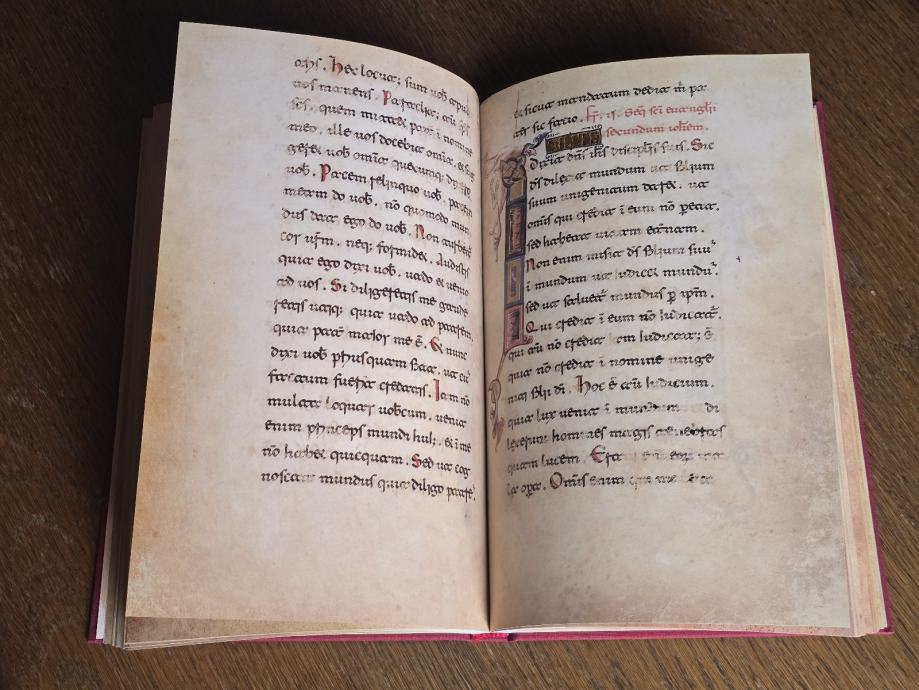 ahs. Hec locut; sum uob apud
uos manens. Paraclit; aũ sp̃s
sc̃s. quem mittet pat̃ ĩ nomine
meo. ille uos docebit omĩa. et sug
geret uob omĩa quecumq; dixero
uob. Pacem relinquo uob. pacem
meam do uob. nõ quomodo mun
dus dat ego do uob. Non turbet̃
cor ur̃m. neq; formidet. Audistis
quia ego dixi uob. uado et uenio
ad uos. Si diligeretis me gaude
retis utiq; quia uado ad patrem.
quia pater maior me ẽ. Et nunc
dixi uob priusquam fiat. ut cũ
factum fuerit credatis. Iam nõ
multa loquar uobcum. uenit
enim princeps mundi hui; et ĩ me
nõ habet quicquam. Sed ut cog
noscat mundus quia diligo patrẽ.
et sicut mandatum dedit m̃ pa
ter sic facio. Fr̃. ij. Seq̃ sc̃i euanglii
secundum iohem.
dixit dñs ihs discipulis suis. Sic
ds̃ dilexit mundum ut filium
suum unigenitum daret. ut
omĩs qui credit ĩ eum nõ pereat.
sed habeat uitam eternam.
Non enim misit ds̃ filium suũ
ĩ mundum ut iudicet mundũ.
sed ut saluet̃ mundus p̃ ip̃m.
Qui credit ĩ eum nõ iudicat̃.
qui aũ nõ credit iam iudicat; ẽ.
quia nõ credit ĩ nomine unige
niti filii di. Hoc ẽ aũ iudicium.
quia lux uenit ĩ mundum et di
lexerunt homines magis tenebras
quam lucem. Erant
la opera. Omĩs enim qui